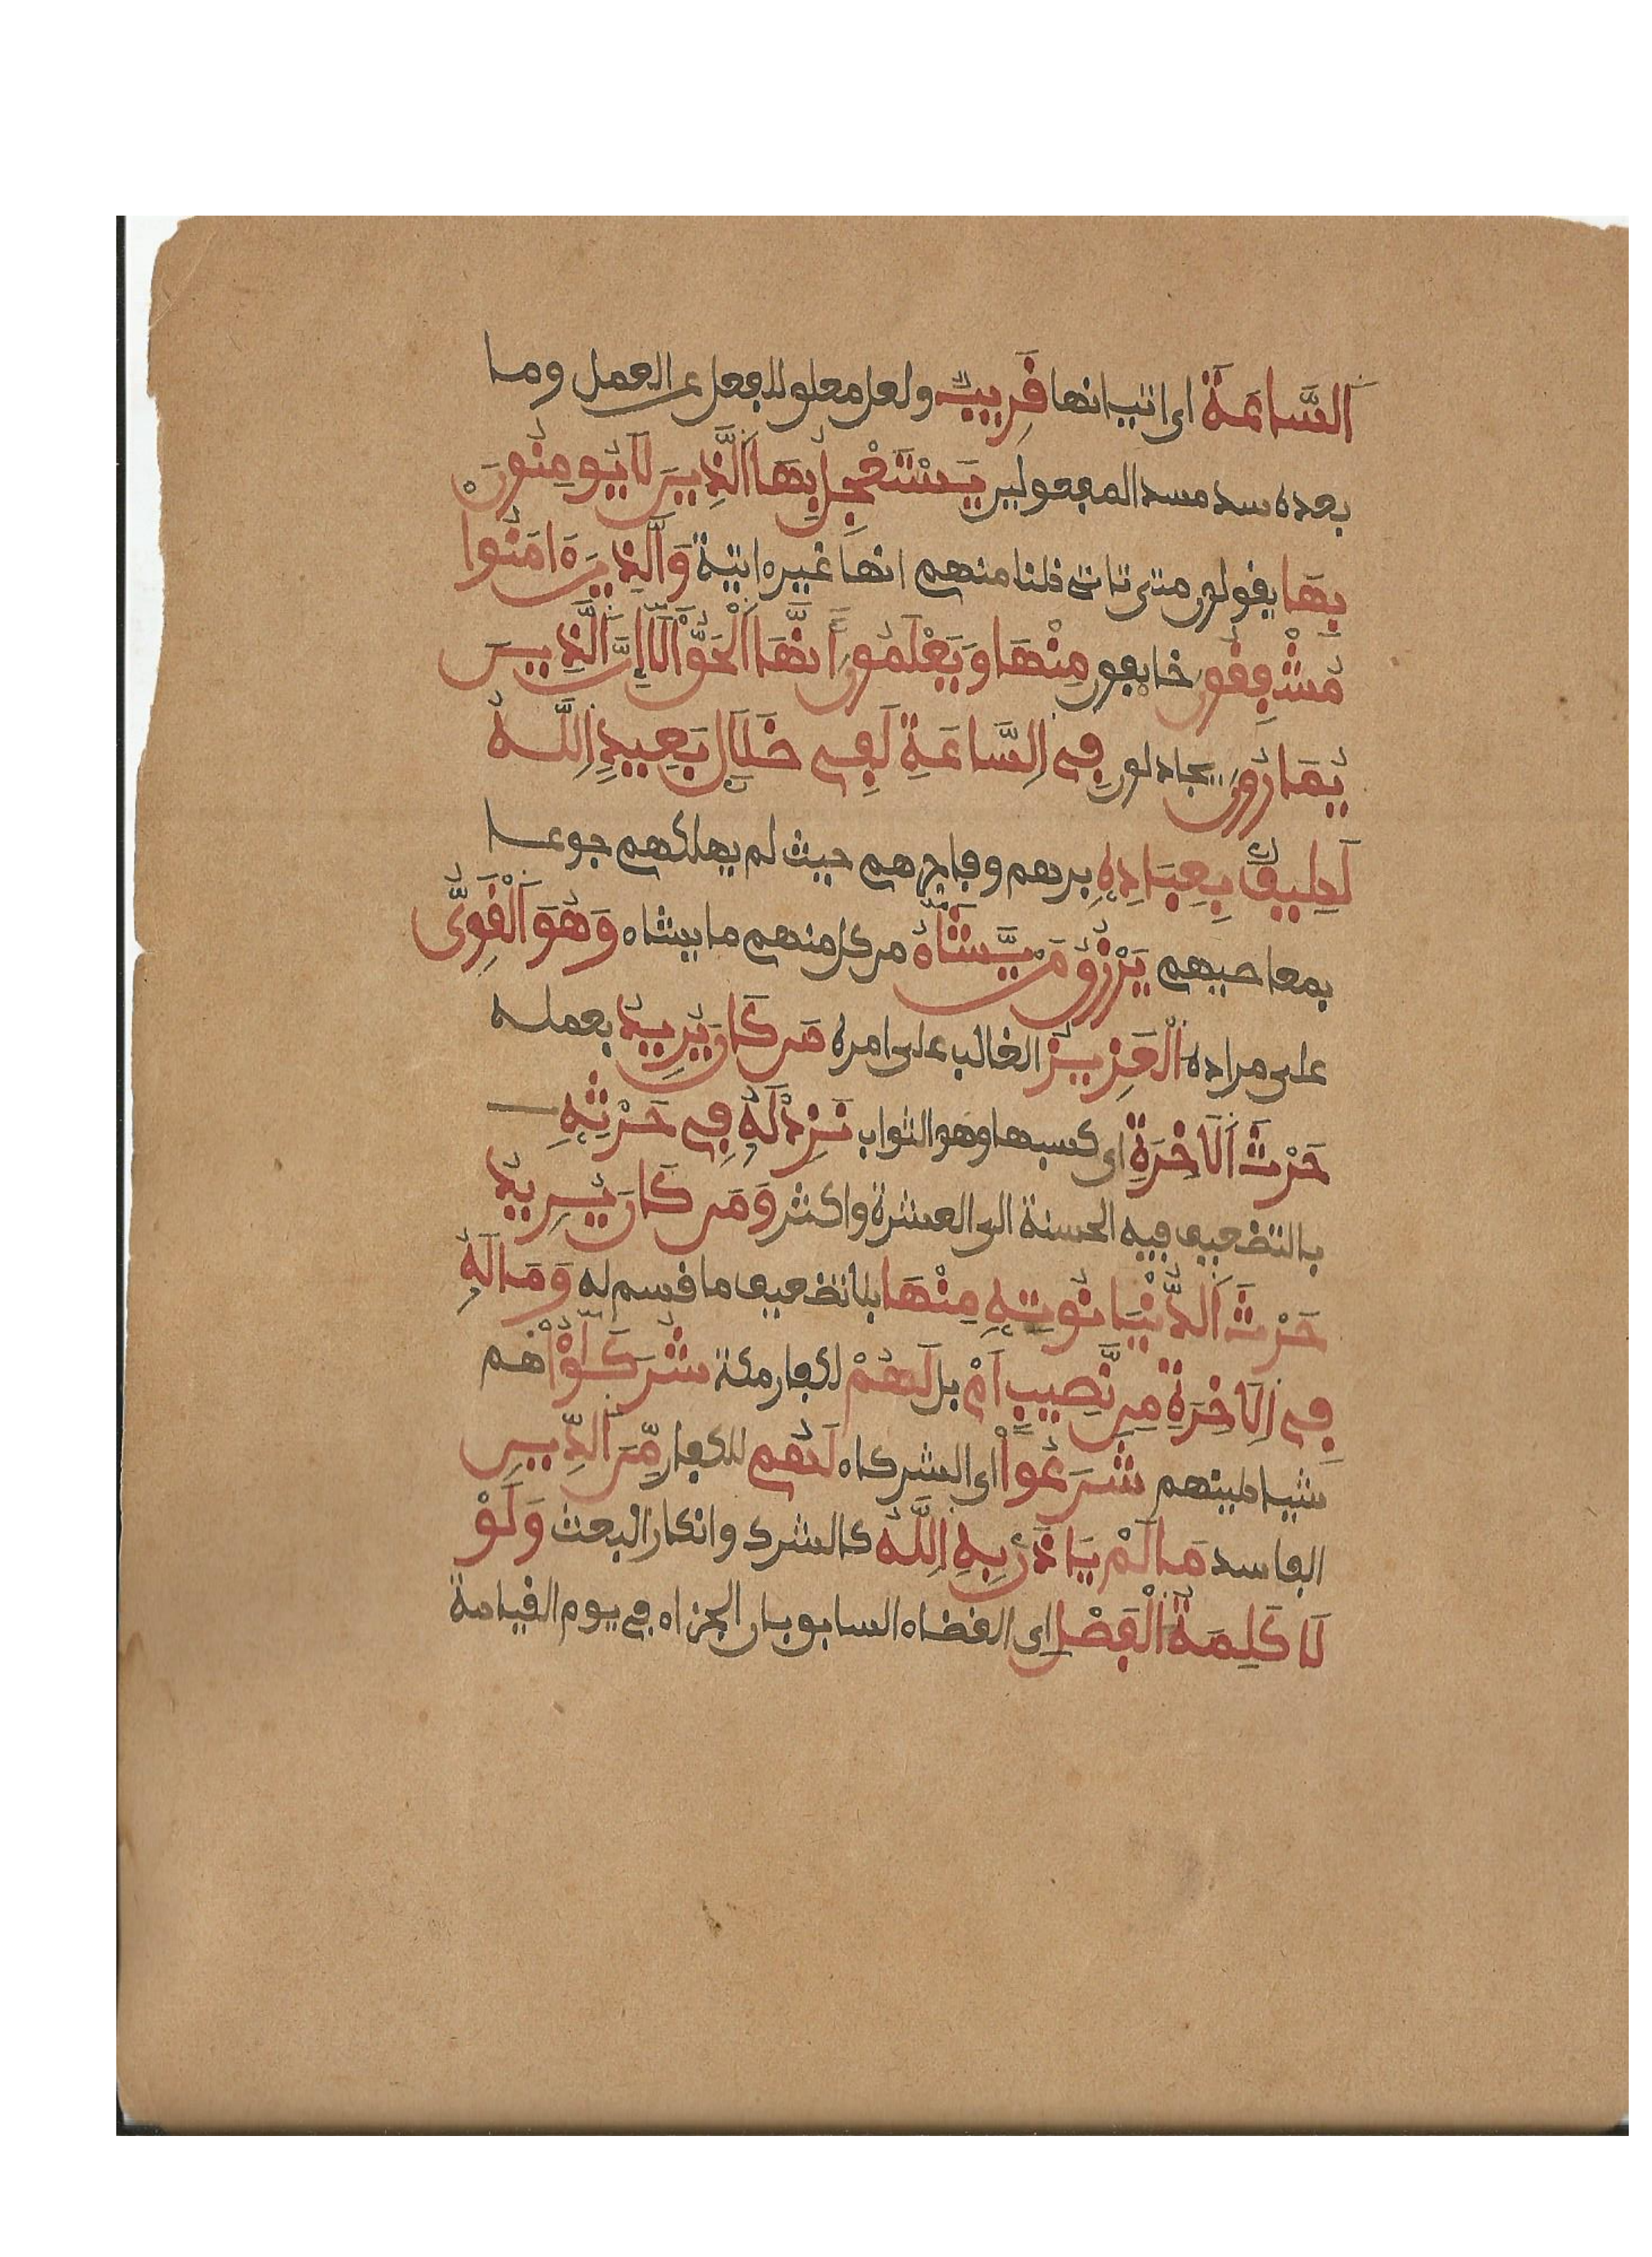 اَلسَّاعَةَ اى اتيانها قَرِيبٌ ولعل معلق للفعل عن العمل وما
بعده سد مسد المفعولين يَسْتَعْجِلُ بِهَا اَلَّذِينَ لَا يُومِنُونَ
بِهَا يقولون متى تاتى ظنا منهم انها غير اتية وَالَّذِينَ ءَامَنُوا
مُشْفِقُونَ خايفون مِنْهَا وَيَعْلَمُونَ أَنَّهَا اَلْحَقُّ أَلَآ إِنَّ اَلَّذِينَ
يُمَارُونَ يجادلون فِى اِلسَّاعَةِ لَفِى ضَلَٰلٍ بَعِيدٍ اِللَّهُ
لَطِيفٌ بِعِبَادِهِ برهم وفاجرهم حيث لم يهلكهم جوعا
بمعاصيهم يَرْزُقُ مَنْ يَّشَآءُ من كل منهم ما يشاء وَهُوَ اَلْقَوِىُّ
على مراده اَلْعَزِيزُ الغالب على امره مَن كَانَ يُرِيدُ بعمله
حَرْثَ اَلَاخِرَةِ اى كسبها وهو الثواب نَزِدْ لَهُ فِى حَرْثِهِ
بالتضعيف فيه الحسنة الى العشرة واكثر وَمَن كَانَ يُرِيدُ
حَرْثَ اَلدُّنْيَا نُوتِهِ مِنْهَا بلا تضعيف ما قسم له وَمَا لَهُ
فِى اِلَاخِرَةِ مِن نَّصِيبٍ اَمْ بل لَهُمْ لكفار مكة شُرَكَٰٓؤُاْ هم
شياطينهم شَرَعُواْ اى الشركاء لَهُم للكفار مِّنَ اَلدِّينِ
الفاسد مَا لَمْ يَاذَنْ بِهِ اِللَّهُ كالشرك وانكار البعث وَلَوْ
لَا كَلِمَةُ اَلْفَصْلِ اى القضاء السابق بان الجزاء فى يوم القيامة